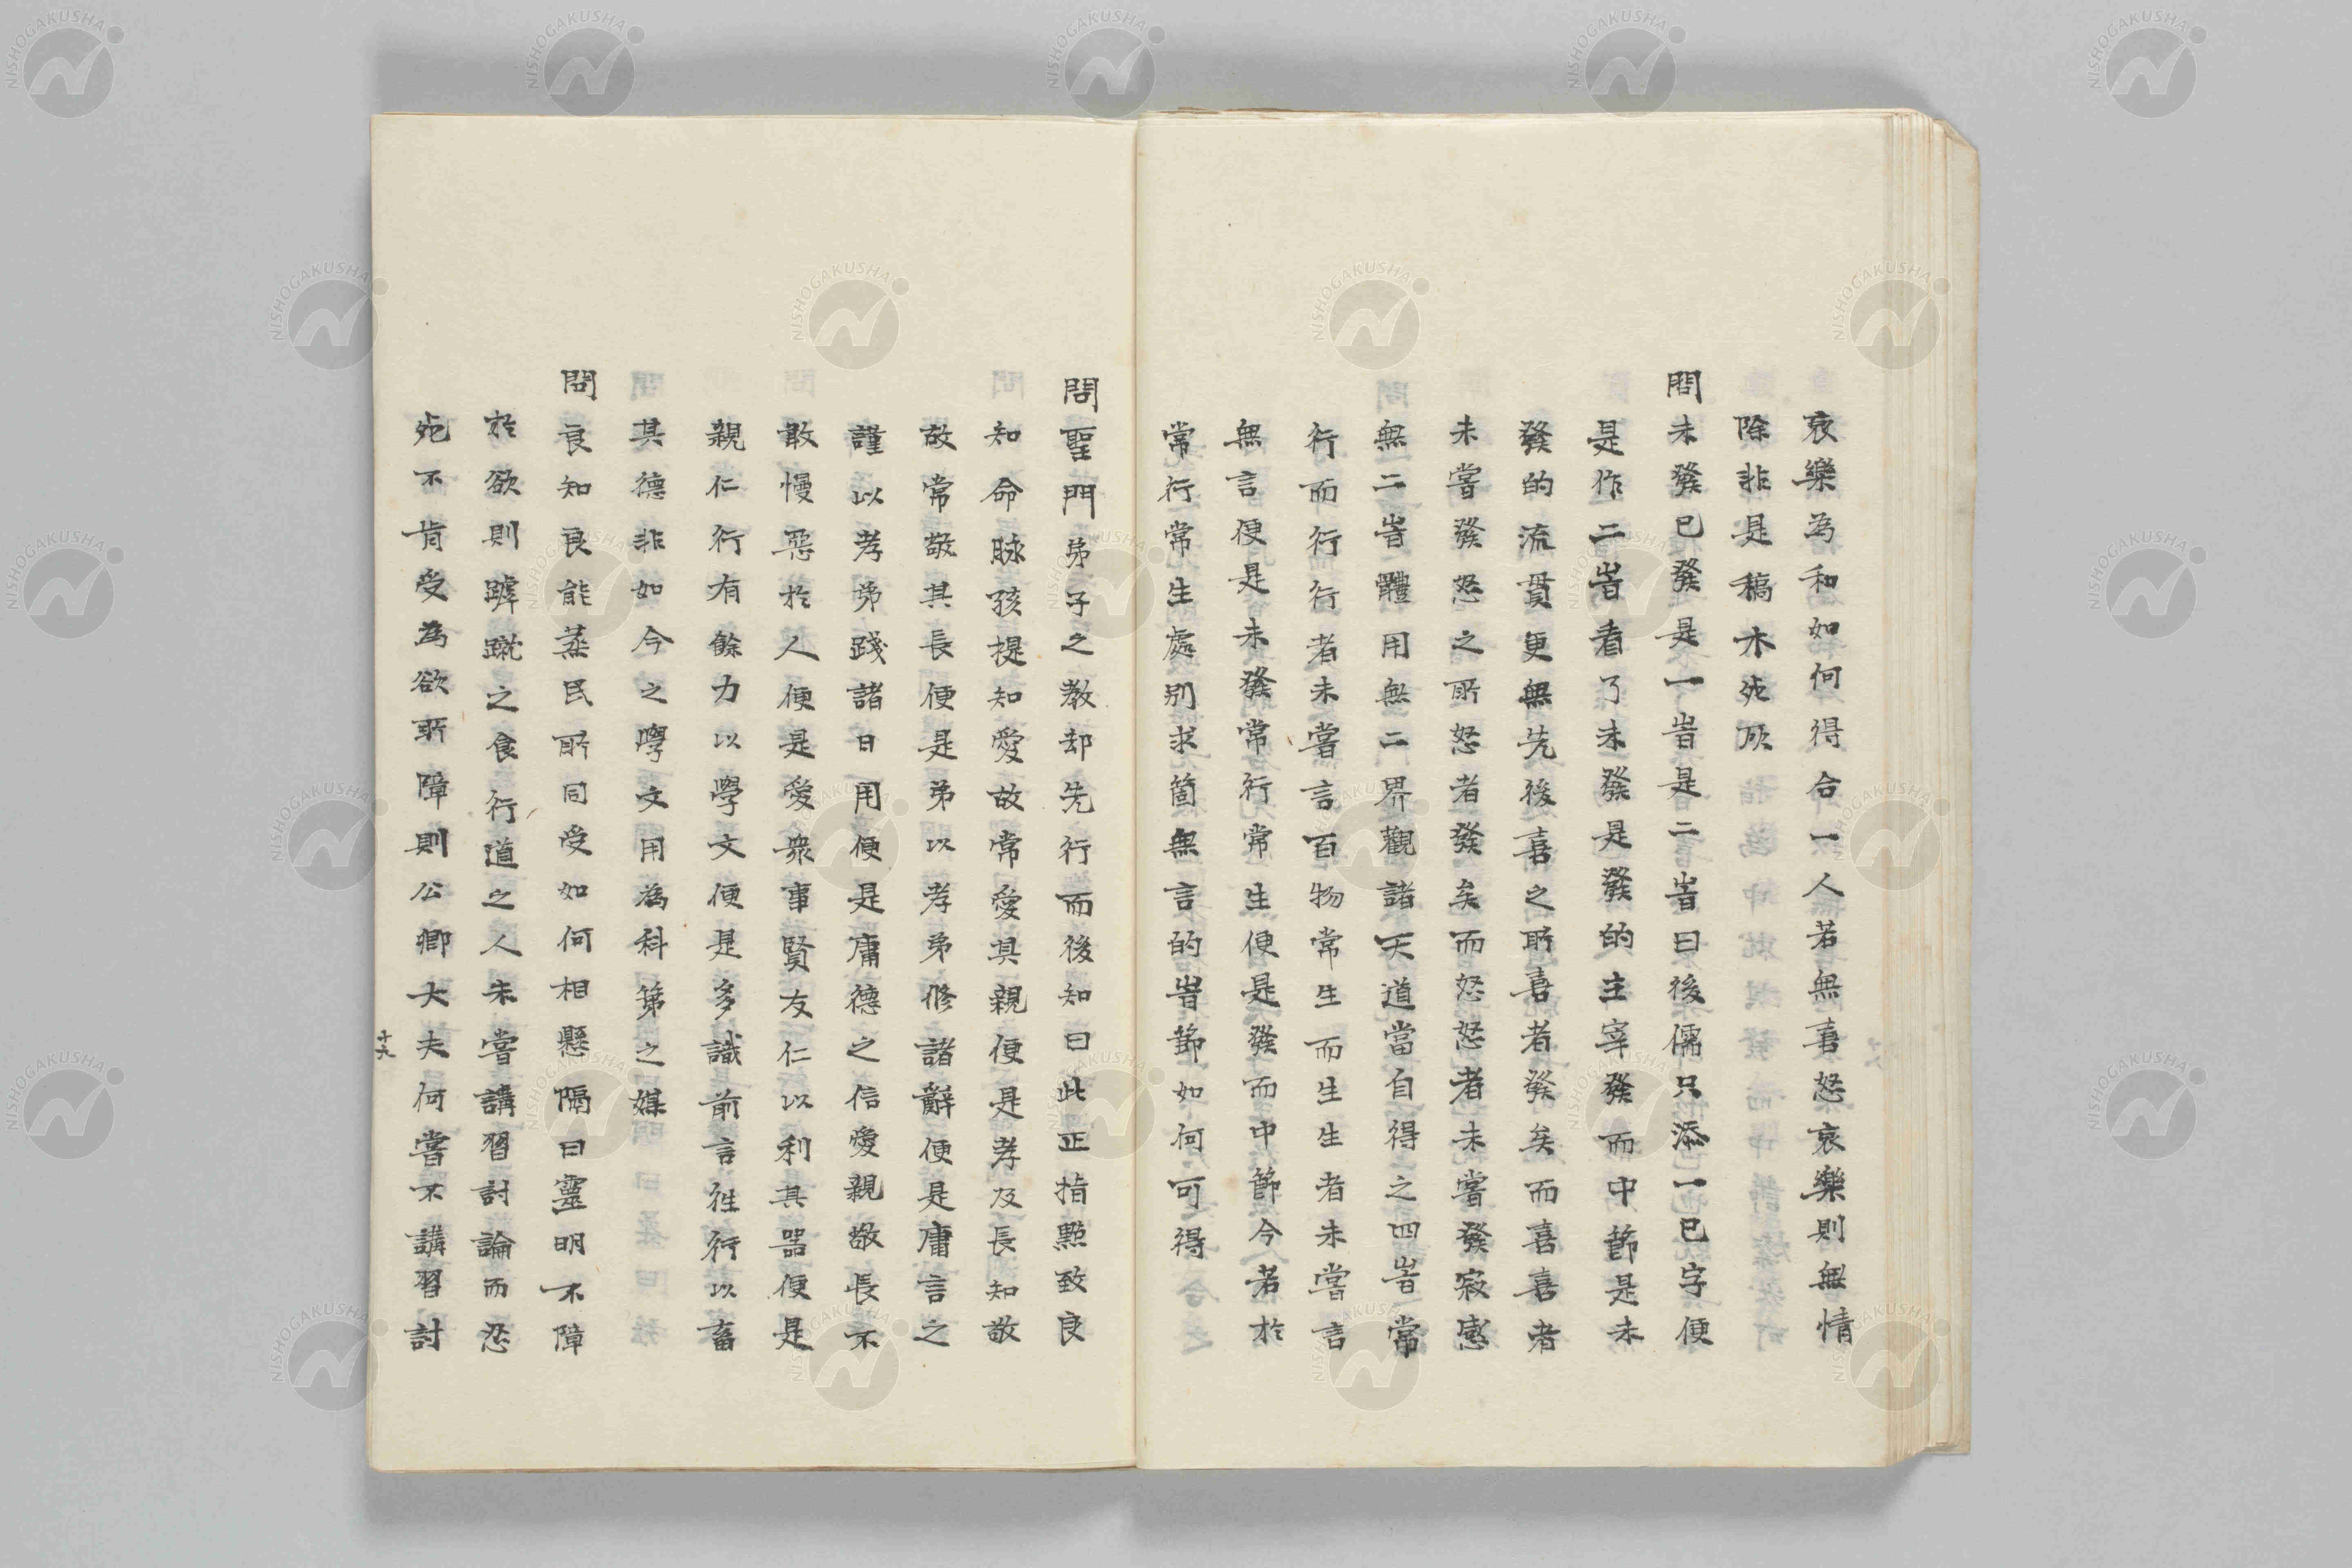 哀樂為和如何得合一人若無喜怒哀樂則無情
除非是稿木死灰
問未發已發是一旹是二旹曰後儒只添一已字便
是作二旹看了未發是發的主宰發而中節是未
發的流貫更無先後喜之所喜者發矣而喜喜者
未嘗發怒之所怒者發矣而怒怒者未嘗發寂感
無二旹體用無二界觀諸天道當自得之四旹常
行而行行者未嘗言百物常生而生生者未嘗言
無言便是未發常行常生便是發而中節今若於
常行常生處別求箇無言的旹節如何可得
問聖門弟子之教却先行而後知曰此正指點致良
知命脉孩提知愛故常愛其親便是孝及長知敬
故常敬其長便是弟以孝弟修諸辭便是庸言之
謹以孝弟踐諸日用便是庸德之信愛親敬長不
敢慢惡於人便是愛衆事賢友仁以利其器便是
親仁行有餘力以學文便是多識前言徃行以畜
其德非如今之學文用為科第之媒
問良知良能蒸民所同受如何相懸隔曰靈明不障
於欲則嘑蹴之食行道之人未嘗講習討論而忍
死不肯受為欲所障則公卿大夫何嘗不講習討
十九
NISHOGAKUSHA